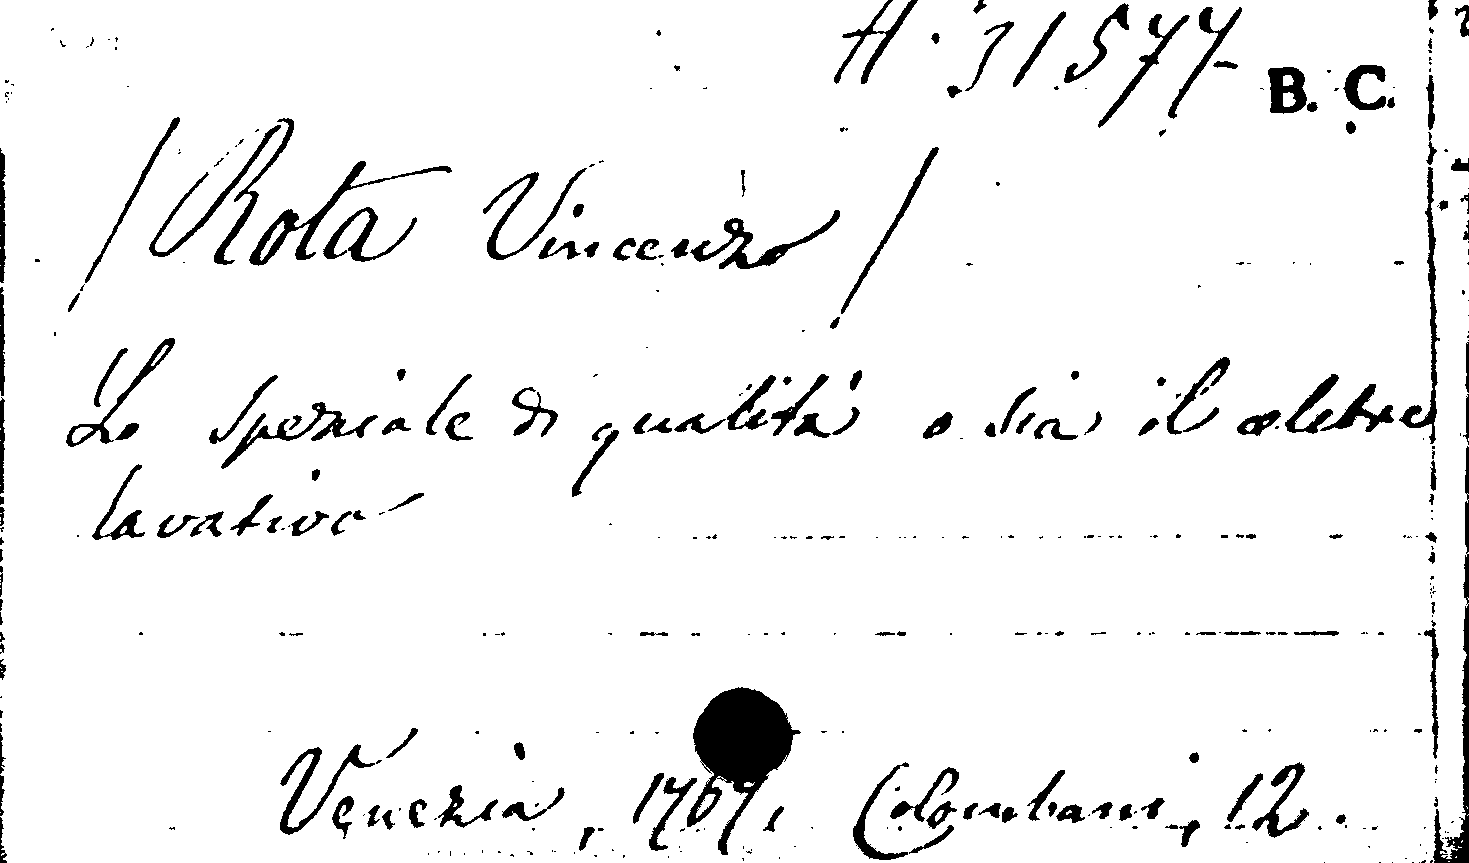 A. 31577
B. C.
/ Rota Vincenzo /
Lo speziale di qualità o sia il celebre
lavativo
Venezia, 1769, Colombani, 12.